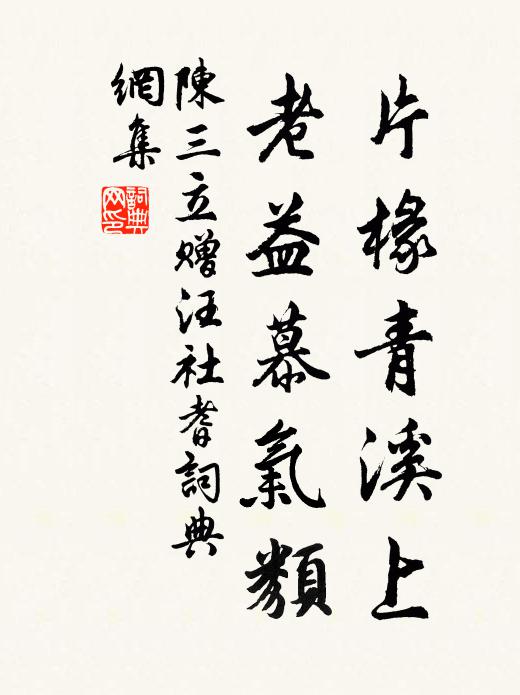 片椽青溪上
老益慕氣類
陳三立贈汪社耆詞典
網集
詞典
网印